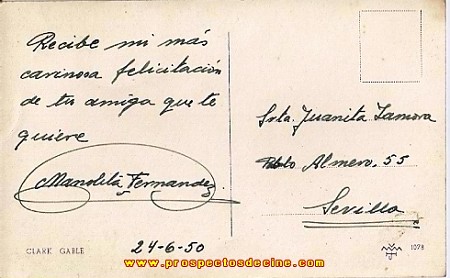 Recibe mi más
carinosa felicitación
de tu amiga que te
quiere
Manolita Fernandez
24-6-50
CLARK GABLE
Srta. Juanita Zamora
Almero, 55
Sevilla
1078
www.prospectosdecine.com